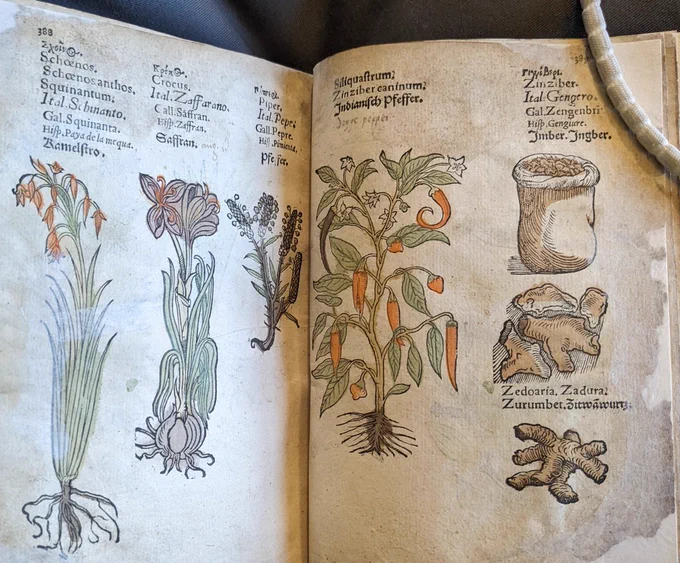 388
Σχοῖνος.
Schœnos.
Schœnosanthos.
Squinantum.
Ital. Schinanto.
Gal. Squinanta.
Hisp. Paya de la mequa.
Kamelstro.
Κρόκος.
Crocus.
Ital. Zaffarano.
Gall. Saffran.
Hisp. Zaffran.
Saffran.
Piper.
Ital. Pepe.
Gall. Pepre.
Hisp. Pimienta.
Pfeffer.
Siliquastrum.
Zinziber caninum.
Indianisch Pfeffer.
Zinziber.
Ital. Gengero.
Gal. Zengenbri
Hisp. Gengiure.
Imber. Ingber.
Zedoaria. Zadura.
Zurumbet. Zitwãwurtz.